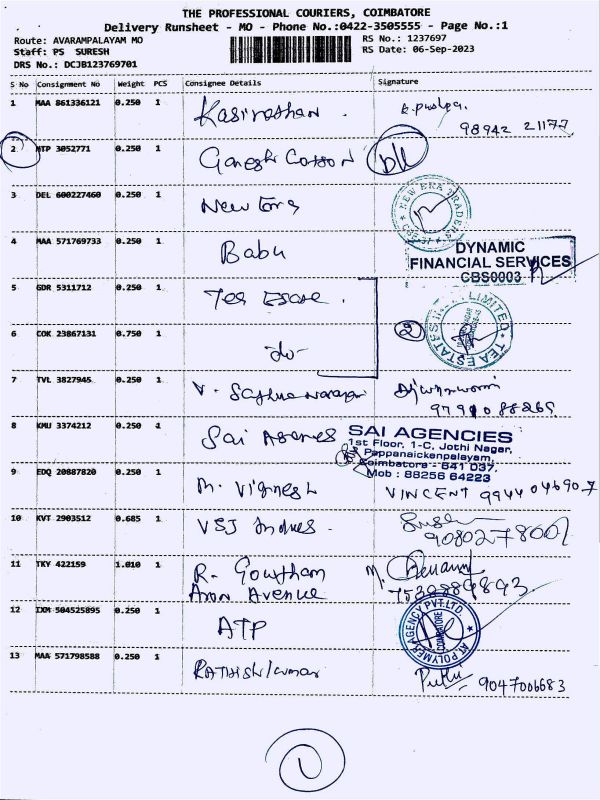 THE PROFESSIONAL COURIERS, COIMBATORE
Delivery Runsheet - MO - Phone No.:0422-3505555 - Page No.:1
Route: AVARAMPALAYAM MO
RS No.: 1237697
Staff: PS SURESH
RS Date: 06-Sep-2023
DRS No.: DCJB123769701
S No Consignment No Weight PCS Consignee Details Signature
1 MAA 861336121 0.250 1 Kasinathan
98942 21177
2 MTP 3052771 0.250 1 Ganesh Cotton
3 DEL 600227460 0.250 1 New Era
NEW ERA TRADERS
4 MAA 571769733 0.250 1 Babu
DYNAMIC
FINANCIAL SERVICES
CBS0003
5 GDR 5311712 0.250 1 Tea Estate
6 COK 23867131 0.750 1 do
2
TEA ESTATES LIMITED
7 TVL 3827945 0.250 1 V. Sathyanarayan
8 KMU 3374212 0.250 1 Sai Agencies
SAI AGENCIES
1st Floor, 1-C, Jothi Nagar,
Pappanaickenpalayam,
Coimbatore - 641 037.
Mob : 88256 64223
9 EDQ 20887820 0.250 1 M. Vignesh
VINCENT 9944046907
10 KVT 2903512 0.685 1 VSJ Indus.
9080278001
11 TKY 422159 1.010 1 R. Gowtham
Aron Avenue
12 IXM 504525895 0.250 1 ATP
POLYMER AGENCY PVT. LTD
COIMBATORE
13 MAA 571798588 0.250 1 RATHISH Kumar
9047006683
1